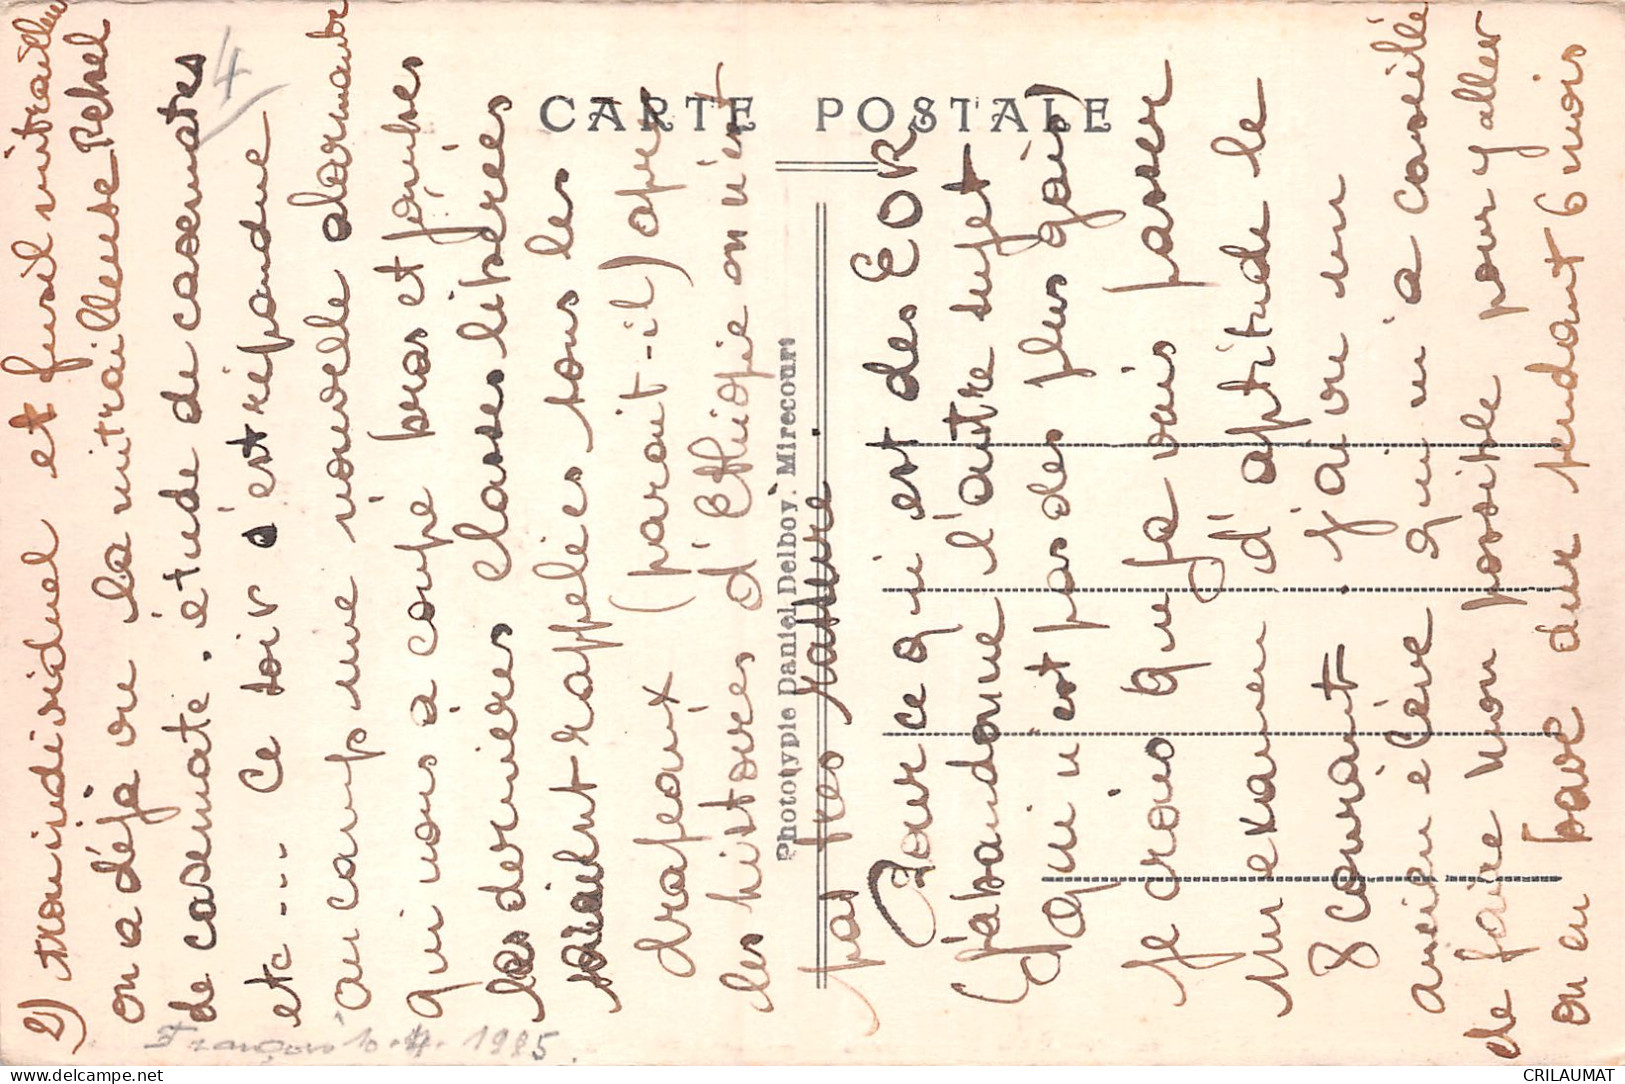 CARTE POSTALE
Phototypie Daniel Delboy. Mirecourt
2) trou individuel et fusil mitrailleur
on a déjà vu la mitrailleuse Reibel
de casemate. étude de casemates
etc.... Ce soir s'est répandue
au camp une nouvelle alarmante
qui nous a coupé bras et jambes
les dernières classes libérées
seraient rappelées sous les
drapeaux (parait-il) après
les histoires d'Ethiopie on n'est
pas très rassuré.
Pour ce qui est des EOR
(j'abandonne l'autre sujet
qui n'est pas des plus gais)
je crois que je vais passer
un examen d'aptitude le
8 courant. j'ai vu un
ancien élève qui m'a conseillé
de faire mon possible pour y aller
on en bave dur pendant 6 mois
4
François 10.4.1935.
CRILAUMAT